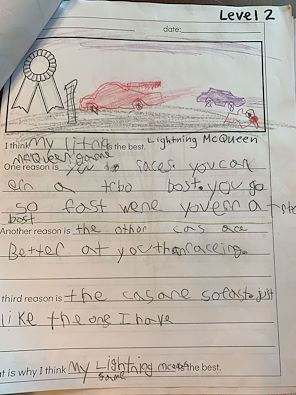 Level 2
date:
I think my litnig is the best. Lightning McQueen
McQueen game
One reason is you do races. you can
ern a trbo bost. you go
so fast wene you ern a
bost
Another reason is the other cas are
Better at you than raceing.
third reason is the cas are so fast. just
like the one I have
t is why I think my Lightning mcqueen is the best.
game